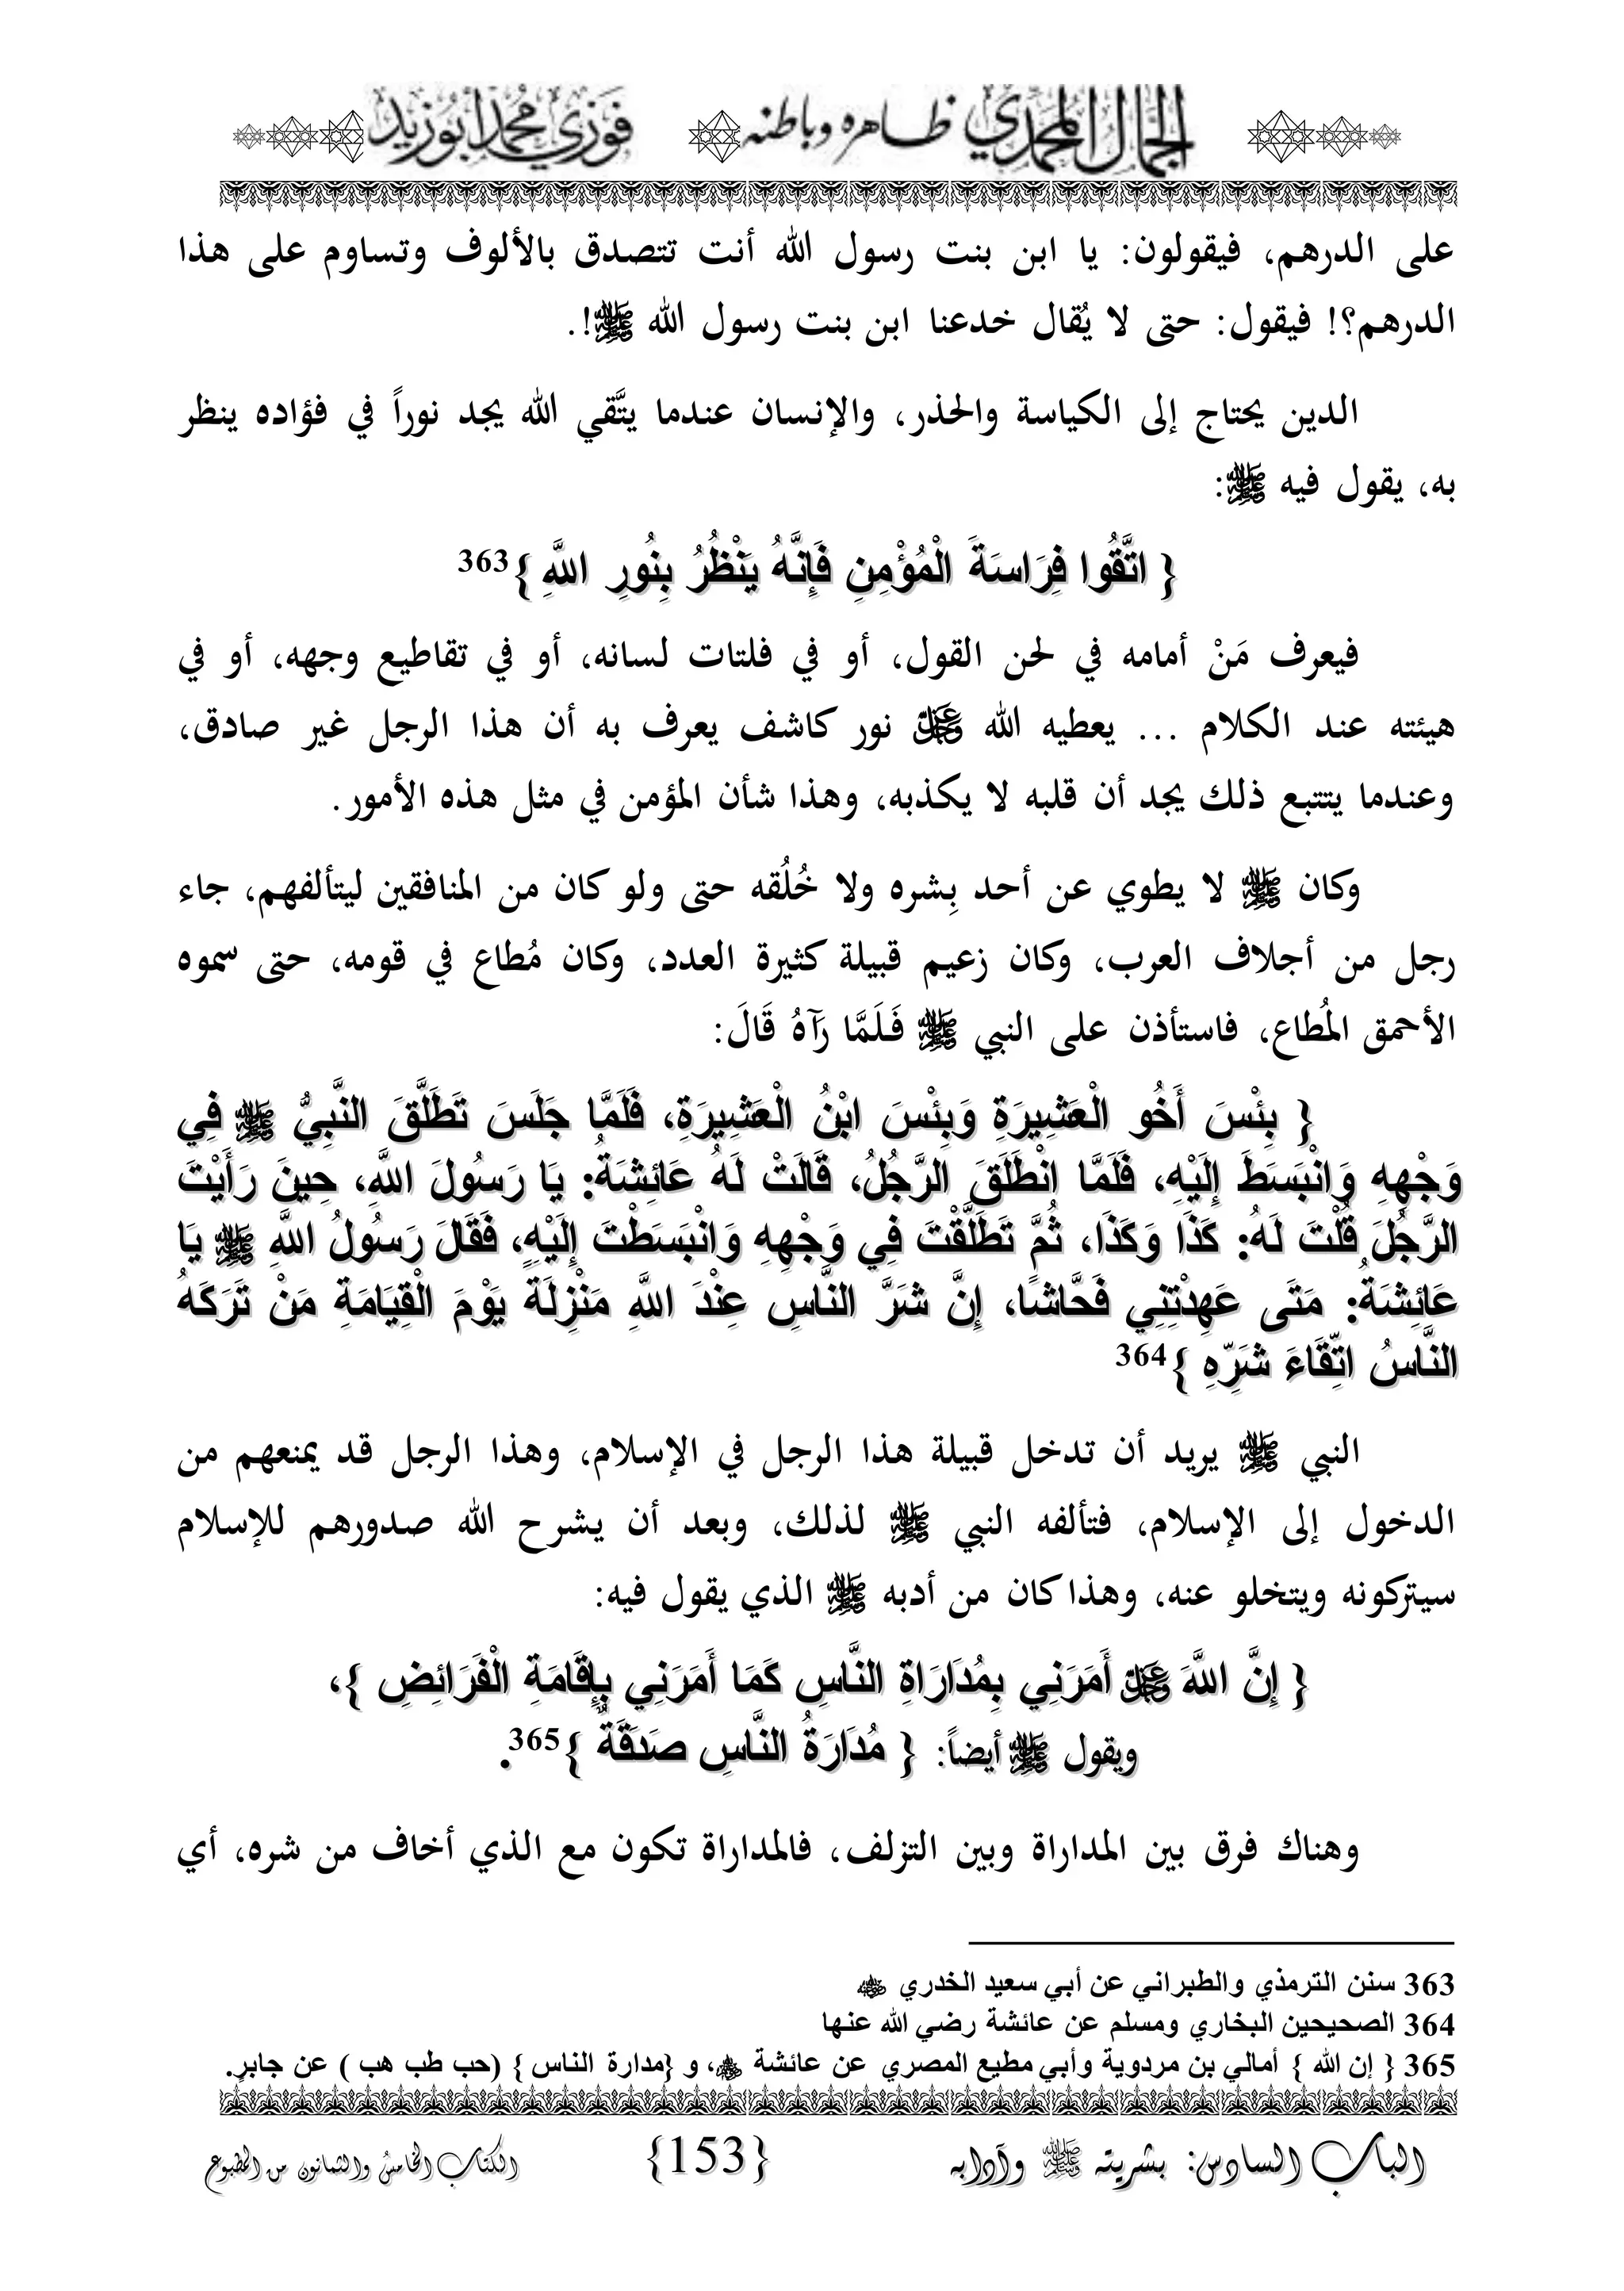 الجمال المحمدي ظاهره وباطنه فوزي محمد أبوزيد
على الدرهم، فيقولون: يا ابن بنت رسول الله أنت تتصدق بالألوف وتساوم على هذا
الدرهم؟! فيقول: حتى لا يُقال خدعنا ابن بنت رسول الله ﷺ!.
الدين يحتاج إلى الكياسة والحذر، والإنسان عندما يتَّقي الله يجد نوراً في فؤاده ينظر
به، يقول فيه ﷺ:
{ اتَّقُوا فِرَاسَةَ الْمُؤْمِنِ فَإِنَّهُ يَنْظُرُ بِنُورِ اللَّهِ }363
فيعرف مَنْ أمامه في لحن القول، أو في فلتات لسانه، أو في تقاطيع وجهه، أو في
هيئته عند الكلام ... يعطيه الله ﷻ نور كاشف يعرف به أن هذا الرجل غير صادق،
وعندما يتتبع ذلك يجد أن قلبه لا يكذبه، وهذا شأن المؤمن في مثل هذه الأمور.
وكان ﷺ لا يطوي عن أحد بِشره ولا خُلُقه حتى ولو كان من المنافقين ليتألفهم، جاء
رجل من أجلاف العرب، وكان زعيم قبيلة كثيرة العدد، وكان مُطاع في قومه، حتى سموه
الأحمق المُطاع، فاستأذن على النبي ﷺ فَلَمَّا رَآهُ قَالَ:
{ بِئْسَ أَخُو الْعَشِيرَةِ وَبِئْسَ ابْنُ الْعَشِيرَةِ، فَلَمَّا جَلَسَ تَطَلَّقَ النَّبِيُّ ﷺ فِي
وَجْهِهِ وَانْبَسَطَ إِلَيْهِ، فَلَمَّا انْطَلَقَ الرَّجُلُ، قَالَتْ لَهُ عَائِشَةُ: يَا رَسُولَ اللَّهِ، حِينَ رَأَيْتَ
الرَّجُلَ قُلْتَ لَهُ: كَذَا وَكَذَا، ثُمَّ تَطَلَّقْتَ فِي وَجْهِهِ وَانْبَسَطْتَ إِلَيْهِ، فَقَالَ رَسُولُ اللَّهِ ﷺ يَا
عَائِشَةُ: مَتَى عَهِدْتِنِي فَحَّاشًا، إِنَّ شَرَّ النَّاسِ عِنْدَ اللَّهِ مَنْزِلَةً يَوْمَ الْقِيَامَةِ مَنْ تَرَكَهُ
النَّاسُ اتِّقَاءَ شَرِّهِ }364
النبي ﷺ يريد أن تدخل قبيلة هذا الرجل في الإسلام، وهذا الرجل قد يمنعهم من
الدخول إلى الإسلام، فتألفه النبي ﷺ لذلك، وبعد أن يشرح الله صدورهم للإسلام
سيتركونه ويتخلو عنه، وهذا كان من أدبه ﷺ الذي يقول فيه:
{ إِنَّ اللَّهَ ﷻ أَمَرَنِي بِمُدَارَاةِ النَّاسِ كَمَا أَمَرَنِي بِإِقَامَةِ الْفَرَائِضِ }،
ويقول ﷺ أيضاً: { مُدَارَةُ النَّاسِ صَدَقَةٌ }365.
وهناك فرق بين المداراة وبين التزلف، فالمداراة تكون مع الذي أخاف من شره، أي
363 سنن الترمذي والطبراني عن أبي سعيد الخدري
364 الصحيحين البخاري ومسلم عن عائشة رضي الله عنها
365 { إن الله } أمالي بن مردوية وأبي مطيع المصري عن عائشة، و {مدارة الناس } (حب طب هب ) عن جابر.
الباب السادس: بشريته ﷺ وآدابه {153} الكتاب الخامس والثمانون من المطبوع